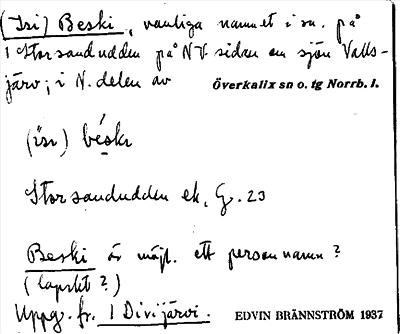 (Isi) Beski, vanliga namnet i sn. på
1 Storsandudden på NV. sidan om sjön Valls-
järv; i N. delen av Överkalix sn o. tg Norrb. l.
béskɩ
Storsandudden ek. G. 23
Beski är möjl. ett personnamn?
(lapskt?)
Uppg. fr. 1 Divijärvi. EDVIN BRÄNNSTRÖM 1937